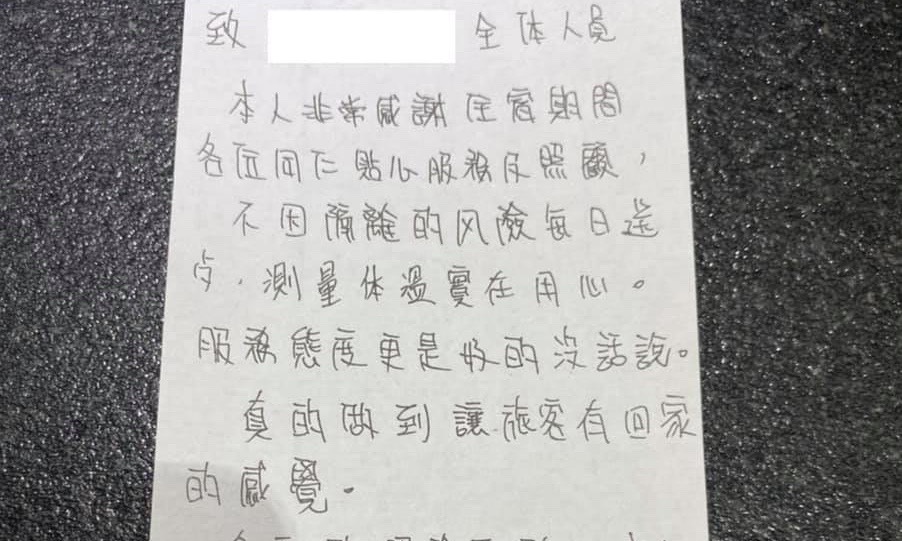 致 全体人員
本人非常感謝住宿期間
各位同仁貼心服務及照顧，
不因隔離的风險每日送
点，測量体溫實在用心。
服務態度更是好的没話說。
真的做到讓旅客有回家
的感覺。